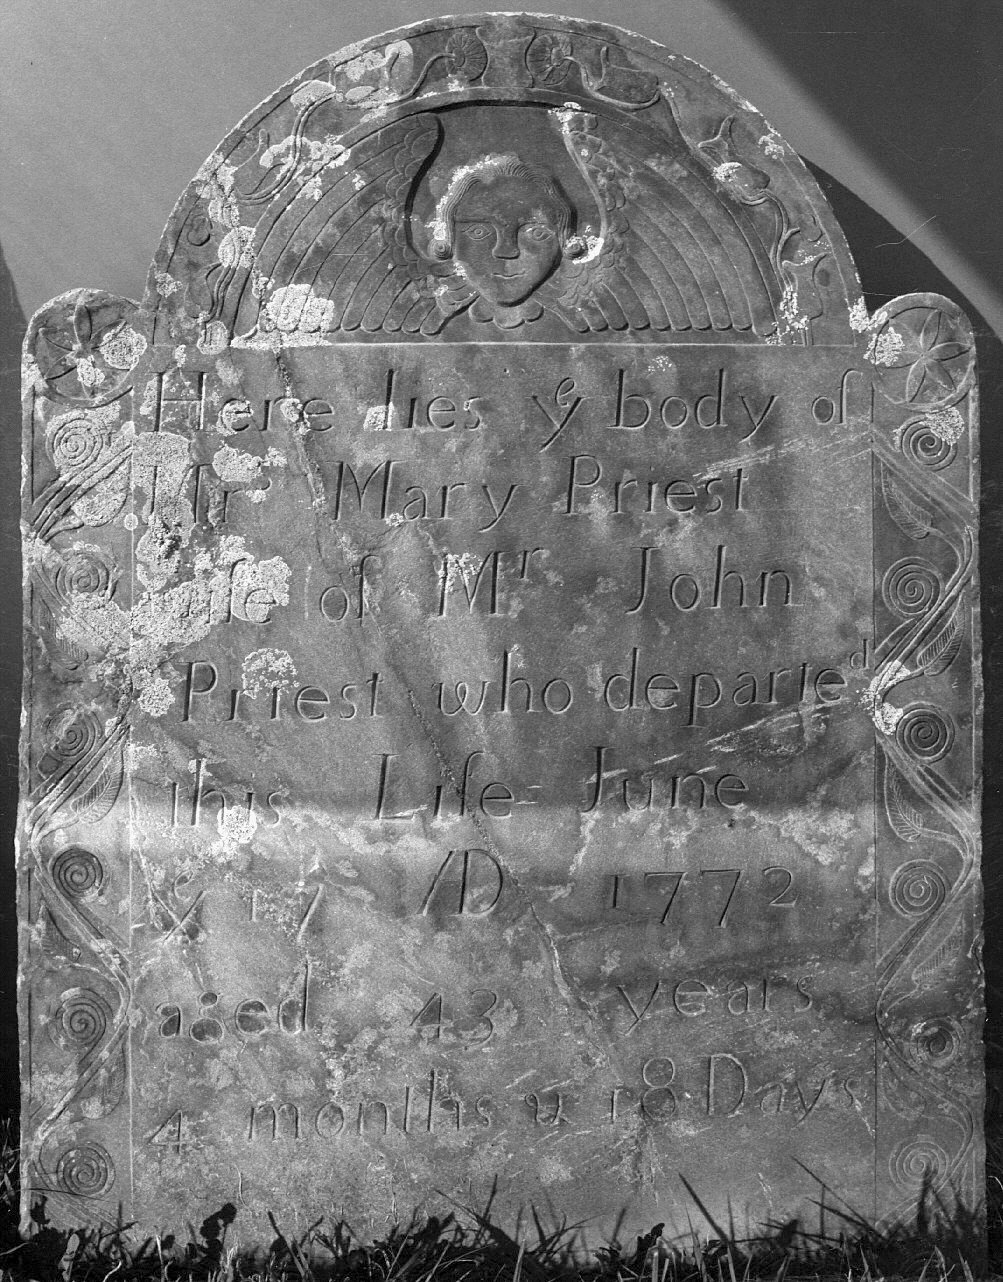 Here lies yᵉ body of
Mʳˢ Mary Priest
wife of Mʳ John
Priest who departeᵈ
this Life June
yᵉ 17 AD 1772
aged 43 years
4 months & 18 Days